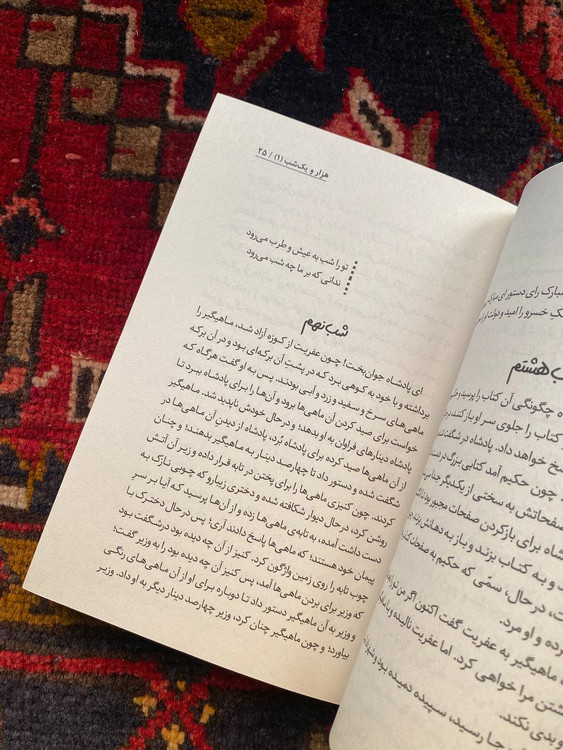 هزار و یک‌شب (۱) / ۲۵
تو را شب به عیش و طرب می‌رود
ندانی که بر ما چه شب می‌رود
شب نهم
ای پادشاه جوان‌بخت! چون عفریت از کوزه آزاد شد، ماهیگیر را
برداشته و با خود به کوهی برد که در پشتِ آن برکه‌ای بود و در آن برکه
ماهی‌های سرخ و سفید و زرد و آبی بودند. پس به او گفت هرگاه که
خواست برای صید کردن آن ماهی‌ها برود و آن‌ها را برای پادشاه ببرد تا
پادشاه دینارهای فراوان به او بدهد؛ و درحال خودش ناپدید شد. ماهیگیر
از آن ماهی‌ها صید کرده برای پادشاه بُرد، پادشاه از دیدنِ آن ماهی‌ها در
شگفت شده و دستور داد تا چهارصد دینار به ماهیگیر بدهند؛ و چنان
کردند. چون کنیزی ماهی‌ها را برای پختن در تابه قرار داده و زیر آن آتش
روشن کرد، درحال دیوار شکافته شده و دختری زیبارو که چوبی نازک به
دست داشت آمده، به تابه‌ی ماهی‌ها زده و از آن‌ها پرسید که آیا بر سرِ
پیمان خود هستند؛ که ماهی‌ها پاسخ دادند آری؛ پس درحال دخترک با
چوب تابه را روی زمین واژگون کرد. کنیز از آن چه دیده بود درشگفت بود
که وزیر برای بردن ماهی‌ها آمد، پس کنیز آن چه دیده بود را به وزیر گفت؛
و وزیر به آن ماهیگیر دستور داد تا دوباره برای او از آن ماهی های رنگی
بیاورد؛ و چون ماهیگیر چنان کرد، وزیر چهارصد دینار دیگر به او داد. وزیر
مبارک رای دستور ای
خسرو را امید و دولت
هشتم
چگونگی آن کتاب را پرسید و
کتاب را جلوی سر او باز کنند،
خواهد داد. پادشاه درشگفت
چون حکیم آمد کتابی بزرگ در
صفحاتش به سختی از یکدیگر جدا
برای باز کردن صفحات مجبور بود
به کتاب بزند و باز به دهانش
درحال، سمّی که حکیم به صفحات
و او مرد.
ماهیگیر به عفریت گفت اکنون اگر من
مرا خواهی کرد. اما عفریت نالیده و
بدی نکند.
رسید، سپیده دمیده بود و